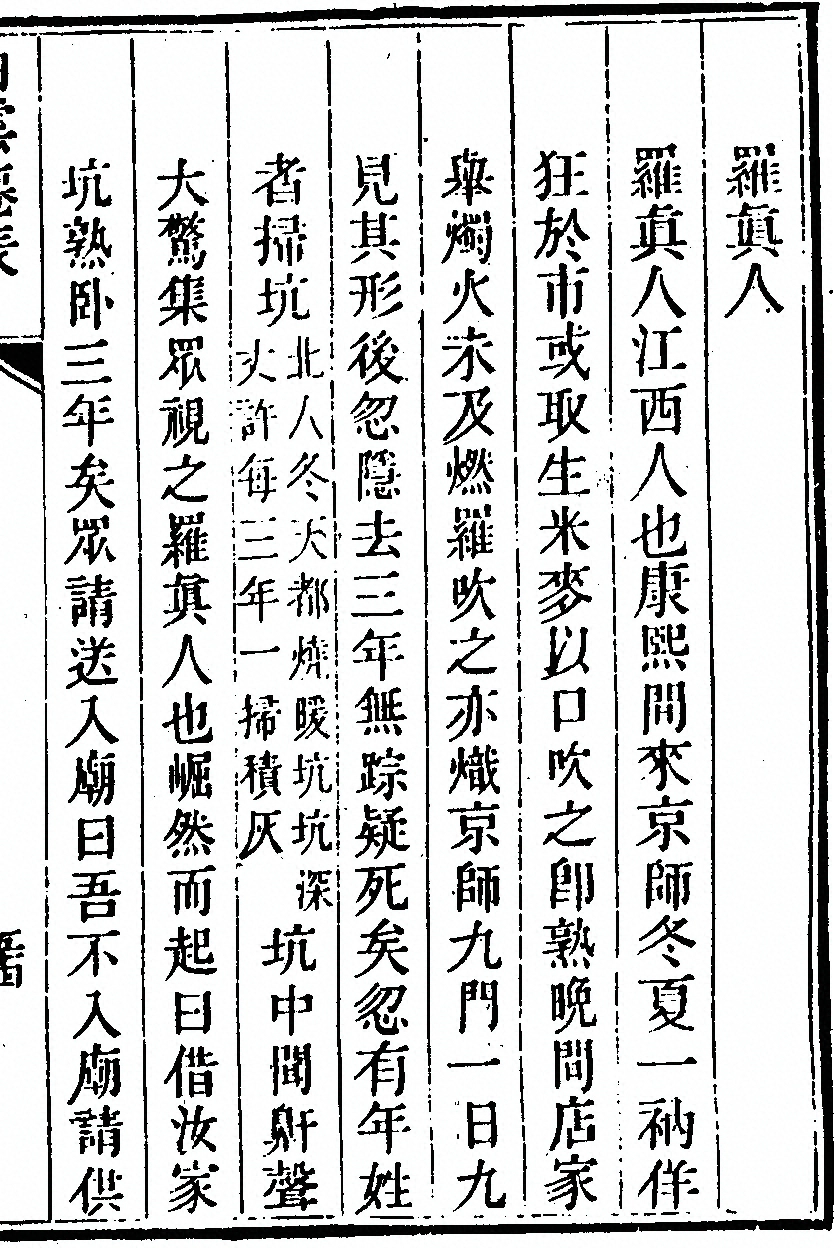 羅眞人
羅眞人江西人也康熙間來京師冬夏一衲佯
狂於市或取生米麥以口吹之卽熟晩間店家
舉燭火未及燃羅吹之亦熾京師九門一日九
見其形後忽隱去三年無踪疑死矣忽有年姓
者掃坑北人冬天都燒暖坑坑深丈許每三年一掃積灰坑中聞鼾聲
大驚集眾視之羅眞人也崛然而起曰借汝家
坑熟卧三年矣眾請送入廟曰吾不入廟請供